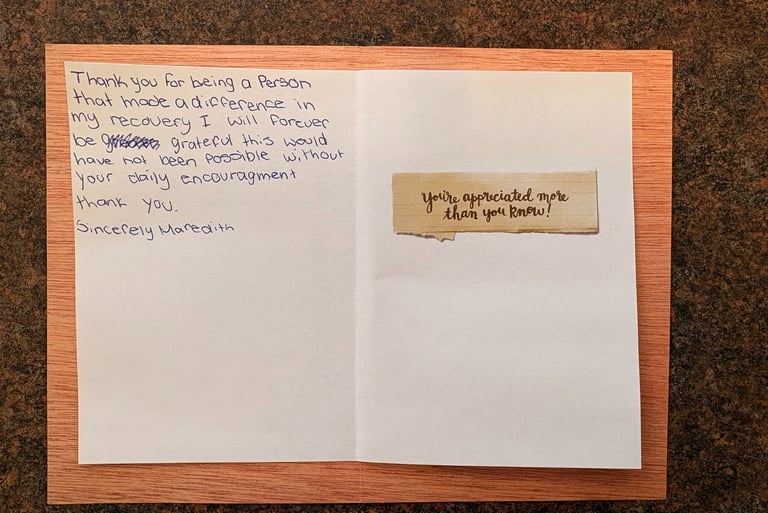 Thank you for being a Person
that made a difference in
my recovery I will forever
be grateful this would
have not been possible without
your daily encouragment
thank you.
Sincerely Maredith
You're appreciated more
than you know!